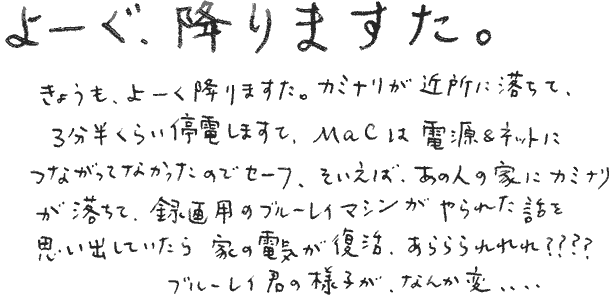 よーぐ、降りますた。
きょうも、よーく降りますた。カミナリが近所に落ちて、
3分半くらい停電しますて、MaCは電源&ネットに
つながってなかったのでセーフ、そいえば、あの人の家にカミナリ
が落ちて、録画用のブルーレイマシンがやられた話を
思い出していたら家の電気が復活、あらららられれれ????
ブルーレイ君の様子が、なんか変、、、、